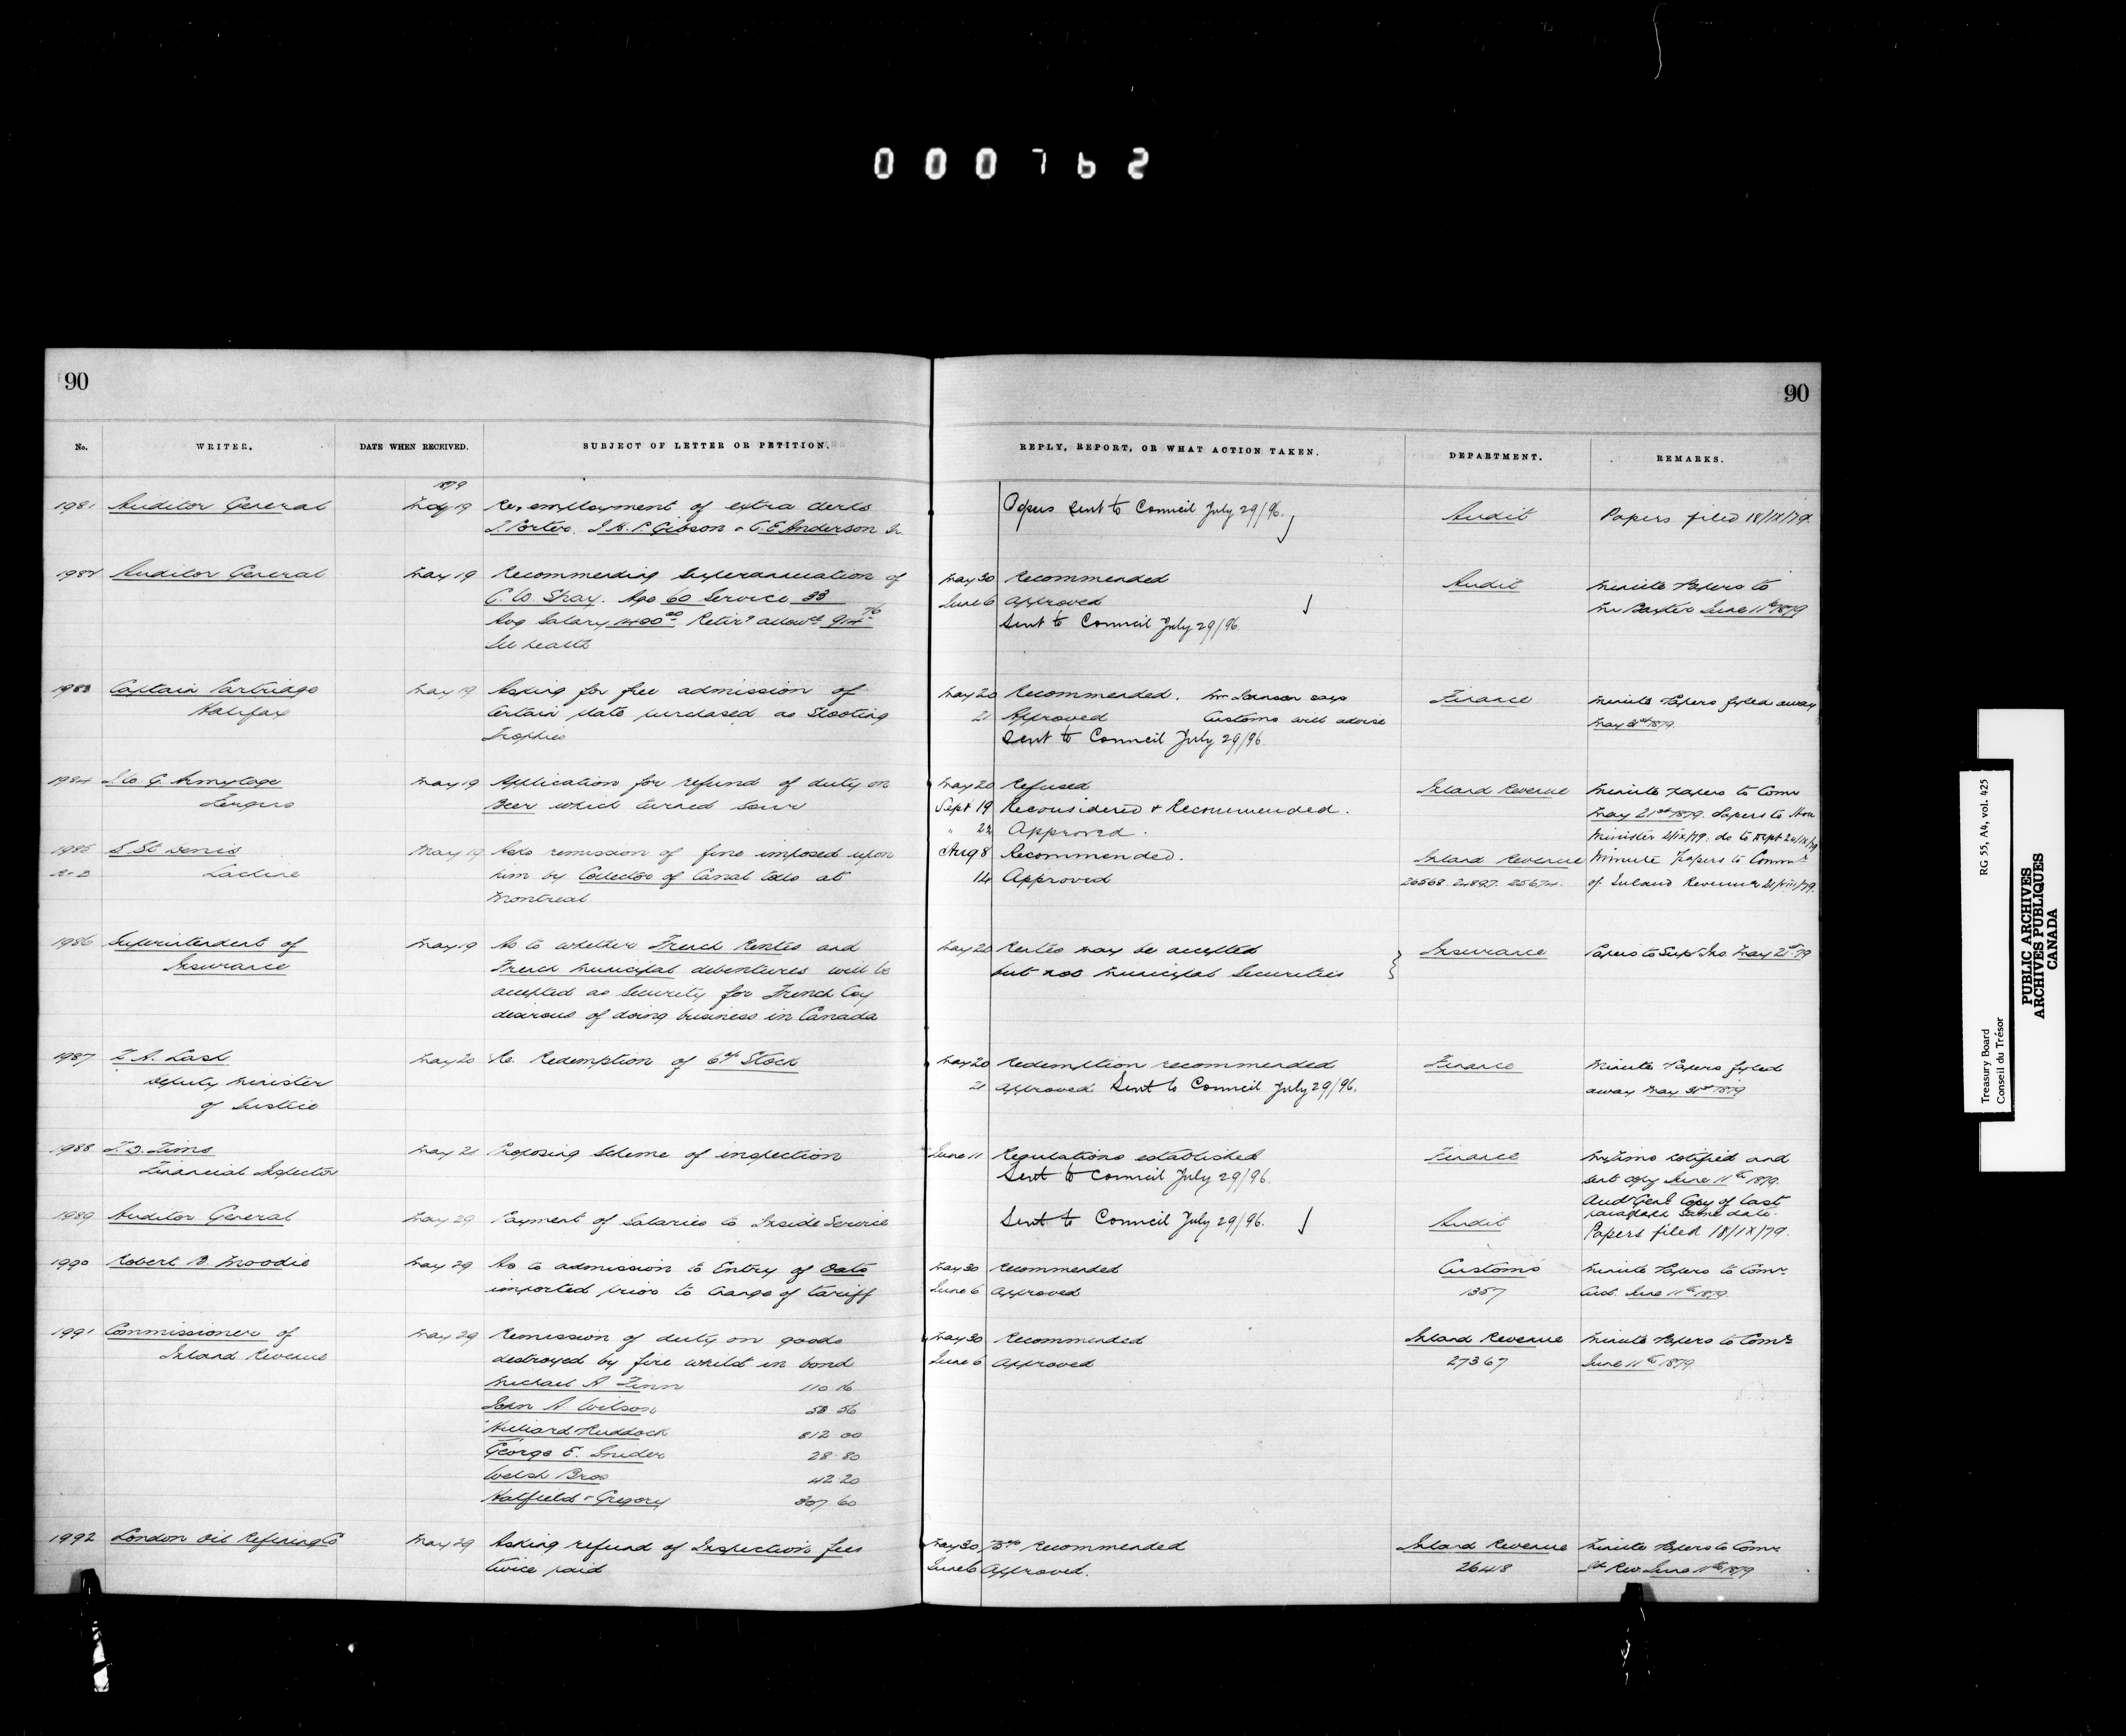 000762
90
90
No.
WRITER.
DATE WHEN RECEIVED.
SUBJECT OF LETTER OR PETITION.
REPLY, REPORT, OR WHAT ACTION TAKEN.
DEPARTMENT.
REMARKS.
1879
1981 Auditor General May 19 Re. employment of extra clerks
J. Porter. J. H. P. Gibson & C. E. Anderson Jr.
Papers sent to Council July 29/96.
Audit
Papers filed 18/IX/79.
1982 Auditor General May 19 Recommending Superannuation of
C. W. Shay. Age 60 Service 33
Avg Salary 1400.00 Retirg allowce 914.76
Ill health
May 30 Recommended
June 6 Approved
Sent to Council July 29/96.
Audit
Minute Papers to
Mr Baxter June 11th 1879
1983 Captain Partridge May 19 Asking for free admission of
Halifax certain plate purchased as Shooting
Trophies
May 20 Recommended. Mr Johnson says
21 Approved Customs will advise
Sent to Council July 29/96.
Finance
Minute Papers fyled away
May 31st 1879.
1984 J. W. G. Armytage May 19 Application for refund of duty on
Fergus Beer which turned sour
May 20 Refused
Sept 19 Reconsidered & Recommended.
" 22 Approved.
Inland Revenue
Minute papers to Comr
May 21st 1879. Papers to Hon
Minister 2/IX/79. do to Dept 24/IX/79
1985 S. St Denis May 19 Asks remission of fine imposed upon
Lachine him by Collector of Canal tolls at
Montreal
Aug 8 Recommended.
14 Approved
Inland Revenue
26568. 24897. 25674.
Minute Papers to Commr
of Inland Revenue 21/VIII/79.
1986 Superintendent of May 19 As to whether French Rentes and
Insurance French Municipal debentures will be
accepted as Security for French Coy
desirous of doing business in Canada
May 20 Rentes may be accepted
but not Municipal Securities
Insurance
Papers to Supt Ins. May 21st 79
1987 Z. A. Lash May 20 Re. Redemption of 6% Stock
Deputy Minister
of Justice
May 20 Redemption recommended
21 Approved Sent to Council July 29/96.
Finance
Minute Papers fyled
away May 31st 1879
1988 T. D. Tims May 21 Proposing Scheme of inspection
Financial Inspector
June 11 Regulations established
Sent to Council July 29/96.
Finance
Mr Tims notified and
sent copy June 11th 1879.
Audr Genl Copy of last
paragraph same date.
1989 Auditor General May 29 Payment of Salaries to Inside Service
Sent to Council July 29/96.
Audit
Papers filed 18/IX/79.
1990 Robert B. Moodie May 29 As to admission to Entry of Oats
imported prior to change of tariff
May 30 Recommended
June 6 Approved
Customs
1357
Minute Papers to Comr
Cust. June 11th 1879.
1991 Commissioner of May 29 Remission of duty on goods
Inland Revenue destroyed by fire whilst in bond
Michael A. Finn 110.16
John A. Wilson 58.56
Hilliard Ruddock 812.00
George E. Snider 28.80
Welsh Bros 42.20
Hatfield & Gregory 307.60
May 30 Recommended
June 6 Approved
Inland Revenue
27367
Minute Papers to Comr
June 11th 1879
1992 London Oil Refining Co May 29 Asking refund of Inspection fees
twice paid
May 30 Recommended
June 6 Approved.
Inland Revenue
26418
Minute Papers to Comr
Id Rev. June 11th 1879
Treasury Board
Conseil du Trésor
RG 55, A4, vol. 425
PUBLIC ARCHIVES
ARCHIVES PUBLIQUES
CANADA